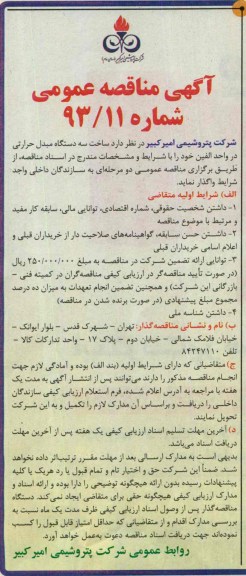 آگهی مناقصه عمومی
شماره ۹۳/۱۱
شرکت پتروشیمی امیرکبیر در نظر دارد ساخت سه دستگاه مبدل حرارتی
در واحد الفین خود را با شرایط و مشخصات مندرج در اسناد مناقصه، از
طریق برگزاری مناقصه عمومی دو مرحله‌ای به سازندگان داخلی واجد
شرایط واگذار نماید.
الف) شرایط اولیه متقاضی
۱- داشتن شخصیت حقوقی، شماره اقتصادی، توانایی مالی، سابقه کار مفید
و مرتبط با موضوع مناقصه
۲- داشتن حسن سابقه، گواهینامه‌های صلاحیت دار از خریداران قبلی و
اعلام اسامی خریداران قبلی
۳- توانایی ارائه تضمین شرکت در مناقصه به مبلغ ۲۵۰/۰۰۰/۰۰۰ ریال
(در صورت تأیید مناقصه‌گر در ارزیابی کیفی مناقصه‌گران در کمیته فنی -
بازرگانی این شرکت) و همچنین تضمین انجام تعهدات به میزان ده درصد
مجموع مبلغ پیشنهادی (در صورت برنده شدن در مناقصه)
۴- داشتن شناسه ملی
ب) نام و نشانی مناقصه‌گذار: تهران - شهرک قدس - بلوار ایوانک -
خیابان فلامک شمالی - خیابان دوم - پلاک ۱۷ - واحد تدارکات کالا -
تلفن ۸۴۲۴۷۱۱۰
ج) متقاضیانی که دارای شرایط اولیه (بند الف) بوده و آمادگی لازم جهت
انجام مناقصه مذکور را دارند می‌توانند پس از انتشار آگهی به مدت یک
هفته با مراجعه به آدرس اعلام شده، فرم استعلام ارزیابی کیفی سازندگان
داخلی را دریافت و براساس آن مدارک لازم را تکمیل و به این شرکت
تحویل نمایند.
د) آخرین مهلت تسلیم اسناد ارزیابی کیفی یک هفته پس از آخرین مهلت
دریافت اسناد می‌باشد.
بدیهی است به مدارک ارسالی بعد از مهلت مقرر ترتیب‌اثر داده نخواهد
شد. ضمناً این شرکت حق و اختیار تام و تمام قبول یا رد هریک یا کلیه
پیشنهادات رسیده بدون ارائه هیچگونه توضیحی را دارا بوده و ارائه اسناد و
مدارک ارزیابی کیفی هیچگونه حقی برای متقاضی ایجاد نمی‌کند. دستگاه
مناقصه‌گذار پس از وصول اسناد ارزیابی کیفی ظرف مدت یک ماه نسبت به
بررسی مدارک اقدام و از متقاضیانی که حداقل امتیاز قابل قبول را کسب
نموده‌اند جهت دریافت اسناد مناقصه دعوت به‌عمل خواهد آورد.
روابط عمومی شرکت پتروشیمی امیرکبیر